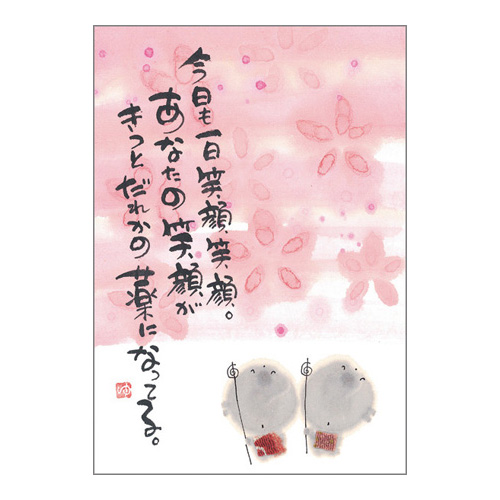 今日も一日笑顔、笑顔。
あなたの笑顔が
きっとだれかの薬になってる。